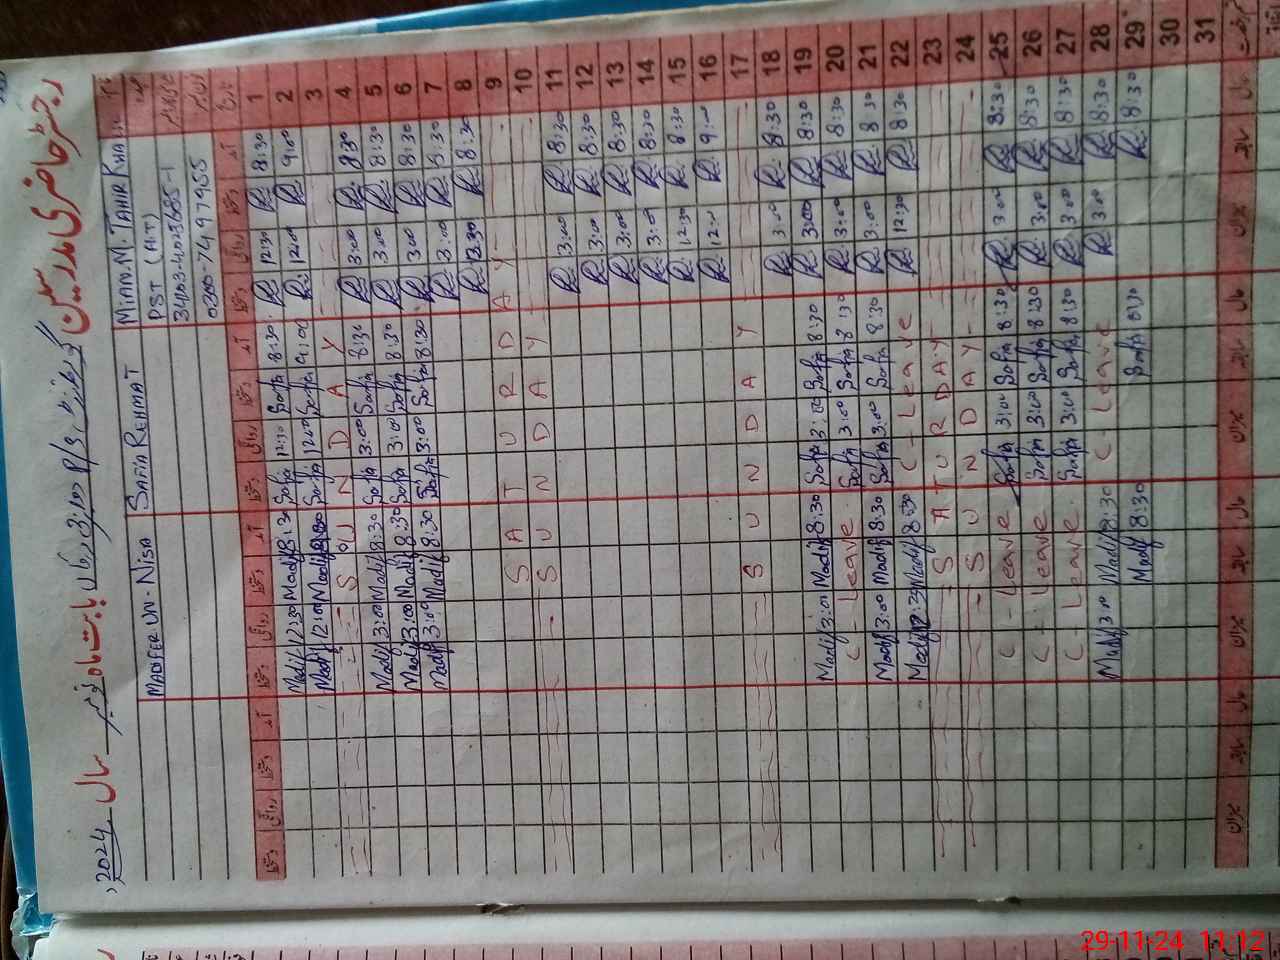 رجسٹر حاضری مدرسین
بابت ماہ نومبر سال 2024
MIAN. M. TAHIR KHAN
SAFIA REHMAT
MADIFER UN-NISA
PST (H.T)
0300-7497965
آمد دستخط روانگی دستخط آمد دستخط روانگی دستخط آمد دستخط روانگی دستخط آمد دستخط روانگی دستخط
1 8:30 12:30 8:30 Safia 12:30 Safia 8:30 Madif 12:30 Madif
2 9:00 12:00 9:00 Safia 12:00 Safia Madif 12:00 Madif
3 S U N D A Y
4 8:30 3:00 8:30 Safia 3:00 Safia 8:30 Madif 3:00 Madif
5 8:30 3:00 8:30 Safia 3:00 Safia 8:30 Madif 3:00 Madif
6 8:30 3:00 8:30 Safia 3:00 Safia 8:30 Madif 3:00 Madif
7 8:30 3:00
8 8:30 12:30
9 S A T U R D A Y
10 S U N D A Y
11 8:30 3:00
12 8:30 3:00
13 8:30 3:00
14 8:30 3:00
15 8:30 12:30
16 9:00 12:00
17 S U N D A Y
18 8:30 3:00
19 8:30 3:00 8:30 Safia 3:00 Safia 8:30 Madif 3:00 Madif
20 8:30 3:00 8:30 Safia 3:00 Safia C - Leave
21 8:30 3:00 8:30 Safia 3:00 Safia 8:30 Madif 3:00 Madif
22 8:30 12:30 C - Leave 8:30 Madif 12:30 Madif
23 S A T U R D A Y
24 S U N D A Y
25 8:30 3:00 8:30 Safia 3:00 Safia C - Leave
26 8:30 3:00 8:30 Safia 3:00 Safia C - Leave
27 8:30 3:00 8:30 Safia 3:00 Safia C - Leave
28 8:30 3:00 C - Leave 8:30 Madif 3:00 Madif
29 8:30 8:30 Safia 8:30 Madif
30
31
حال سابقہ میزان حال سابقہ میزان حال سابقہ میزان حال سابقہ میزان
29-11-24 11:12